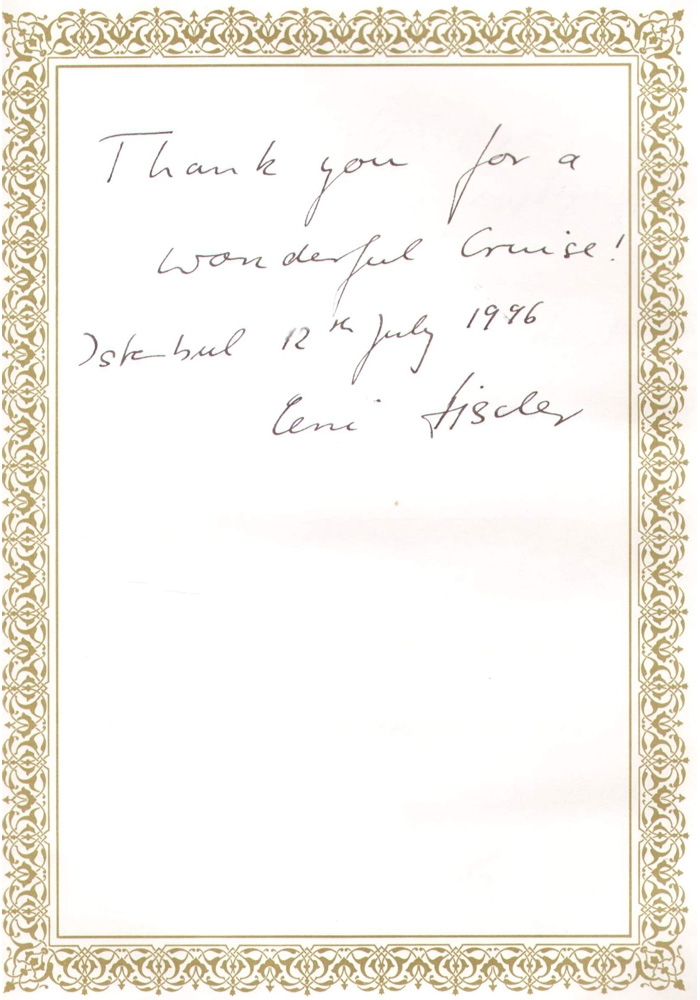 Thank you for a
wonderful Cruise!
Istanbul 12th July 1996
Leni Fischer